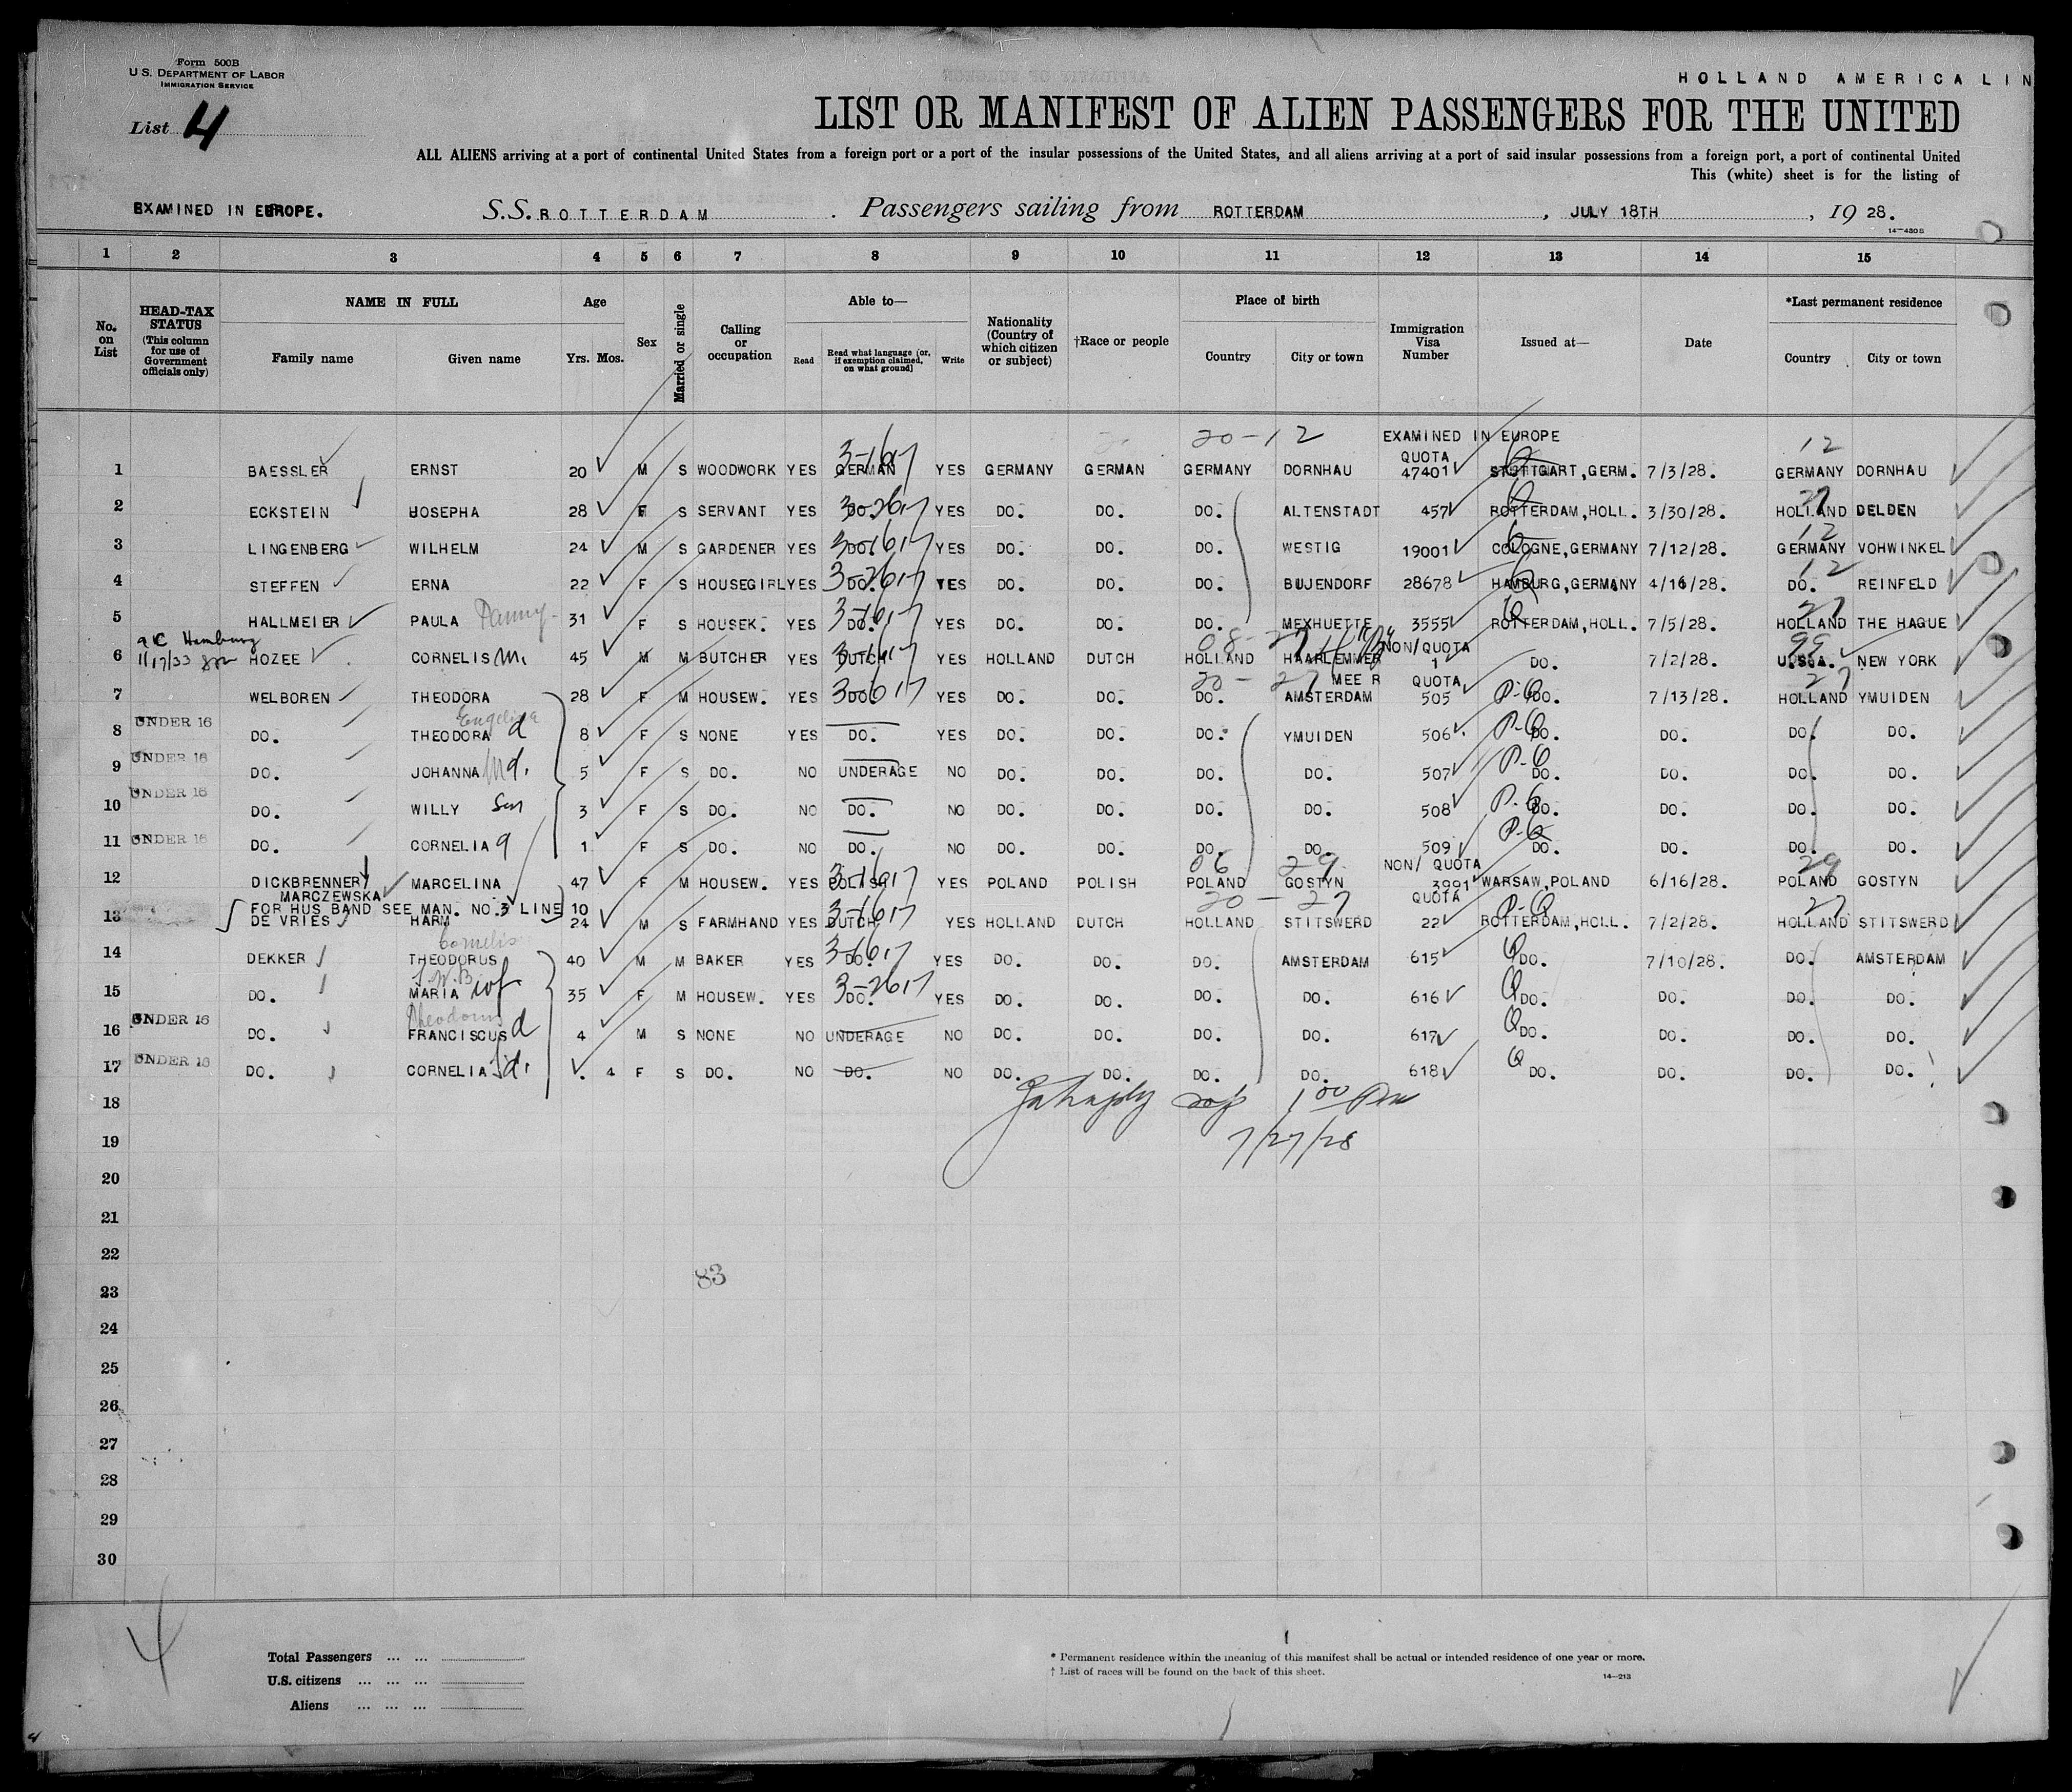 Form 500B
U.S. DEPARTMENT OF LABOR
IMMIGRATION SERVICE
HOLLAND AMERICA LIN
List 4
LIST OR MANIFEST OF ALIEN PASSENGERS FOR THE UNITED
ALL ALIENS arriving at a port of continental United States from a foreign port or a port of the insular possessions of the United States, and all aliens arriving at a port of said insular possessions from a foreign port, a port of continental United
This (white) sheet is for the listing of
EXAMINED IN EUROPE. S.S. ROTTERDAM. Passengers sailing from ROTTERDAM, JULY 18TH, 19 28.
14-430B
1 2 3 4 5 6 7 8 9 10 11 12 13 14 15
No. on List
HEAD-TAX STATUS (This column for use of Government officials only)
NAME IN FULL Family name Given name
Age Yrs. Mos.
Sex
Married or single
Calling or occupation
Able to— Read Read what language (or, if exemption claimed, on what ground) Write
Nationality (Country of which citizen or subject)
†Race or people
Place of birth Country City or town
Immigration Visa Number
Issued at—
Date
*Last permanent residence Country City or town
20-12 EXAMINED IN EUROPE 12
QUOTA
1 BAESSLER ERNST 20 M S WOODWORK YES GERMAN 3-1617 YES GERMANY GERMAN GERMANY DORNHAU 47401 STUTTGART, GERM. 7/3/28. GERMANY DORNHAU
2 ECKSTEIN JOSEPHA 28 F S SERVANT YES DO. 3-2617 YES DO. DO. DO. ALTENSTADT 457 ROTTERDAM, HOLL. 3/30/28. 27 HOLLAND DELDEN
3 LINGENBERG WILHELM 24 M S GARDENER YES DO. 3-1617 YES DO. DO. DO. WESTIG 19001 COLOGNE, GERMANY 7/12/28. 12 GERMANY VOHWINKEL
4 STEFFEN ERNA 22 F S HOUSEGIRL YES DO. 3-2617 YES DO. DO. DO. BUJENDORF 28678 HAMBURG, GERMANY 4/16/28. 12 DO. REINFELD
5 HALLMEIER PAULA 31 F S HOUSEK. YES DO. 3-1617 YES DO. DO. DO. MEXHUETTE 3555 ROTTERDAM, HOLL. 7/5/28. 27 HOLLAND THE HAGUE
Hamburg
11/17/33
08-27 NON/QUOTA 99
6 HOZEE CORNELIS m. 45 M M BUTCHER YES DUTCH 3-1617 YES HOLLAND DUTCH HOLLAND HAARLEMMER 1 DO. 7/2/28. U.S.A. NEW YORK
20-27 MEER QUOTA 27
7 WELBOREN THEODORA 28 F M HOUSEW. YES DO. YES DO. DO. DO. AMSTERDAM 505 P-Q DO. 7/13/28. HOLLAND YMUIDEN
Engelina
8 UNDER 16 DO. THEODORA d 8 F S NONE YES DO. YES DO. DO. DO. YMUIDEN 506 P-Q DO. DO. DO. DO.
9 UNDER 16 DO. JOHANNA M d. 5 F S DO. NO UNDERAGE NO DO. DO. DO. DO. 507 P-Q DO. DO. DO. DO.
10 UNDER 16 DO. WILLY Son 3 F S DO. NO DO. NO DO. DO. DO. DO. 508 P-Q DO. DO. DO. DO.
11 UNDER 16 DO. CORNELIA 1 F S DO. NO DO. NO DO. DO. DO. DO. 509 P-Q DO. DO. DO. DO.
06 29 NON/ QUOTA 29
12 DICKBRENNER MARCELINA 47 F M HOUSEW. YES POLISH 3-1617 YES POLAND POLISH POLAND GOSTYN 3991 WARSAW, POLAND 6/16/28. POLAND GOSTYN
MARCZEWSKA
FOR HUSBAND SEE MAN. NO. 3 LINE 10
20-27 QUOTA P-Q 27
13 DE VRIES HARM 24 M S FARMHAND YES DUTCH 3-1617 YES HOLLAND DUTCH HOLLAND STITSWERD 22 ROTTERDAM, HOLL. 7/2/28. HOLLAND STITSWERD
Cornelis
14 DEKKER THEODORUS 40 M M BAKER YES DO. 3-1617 YES DO. DO. DO. AMSTERDAM 615 Q DO. 7/10/28. DO. AMSTERDAM
15 DO. MARIA wf 35 F M HOUSEW. YES DO. 3-2617 YES DO. DO. DO. DO. 616 Q DO. DO. DO. DO.
Theodorus
16 UNDER 16 DO. FRANCISCUS d 4 M S NONE NO UNDERAGE NO DO. DO. DO. DO. 617 Q DO. DO. DO. DO.
17 UNDER 16 DO. CORNELIA d. 4 F S DO. NO DO. NO DO. DO. DO. DO. 618 Q DO. DO. DO. DO.
18 1 00 PM
19 7/27/28
20
21
22
23 83
24
25
26
27
28
29
30
4
Total Passengers ... ...
U.S. citizens ... ... ...
Aliens ... ... ...
* Permanent residence within the meaning of this manifest shall be actual or intended residence of one year or more.
† List of races will be found on the back of this sheet.
14-213